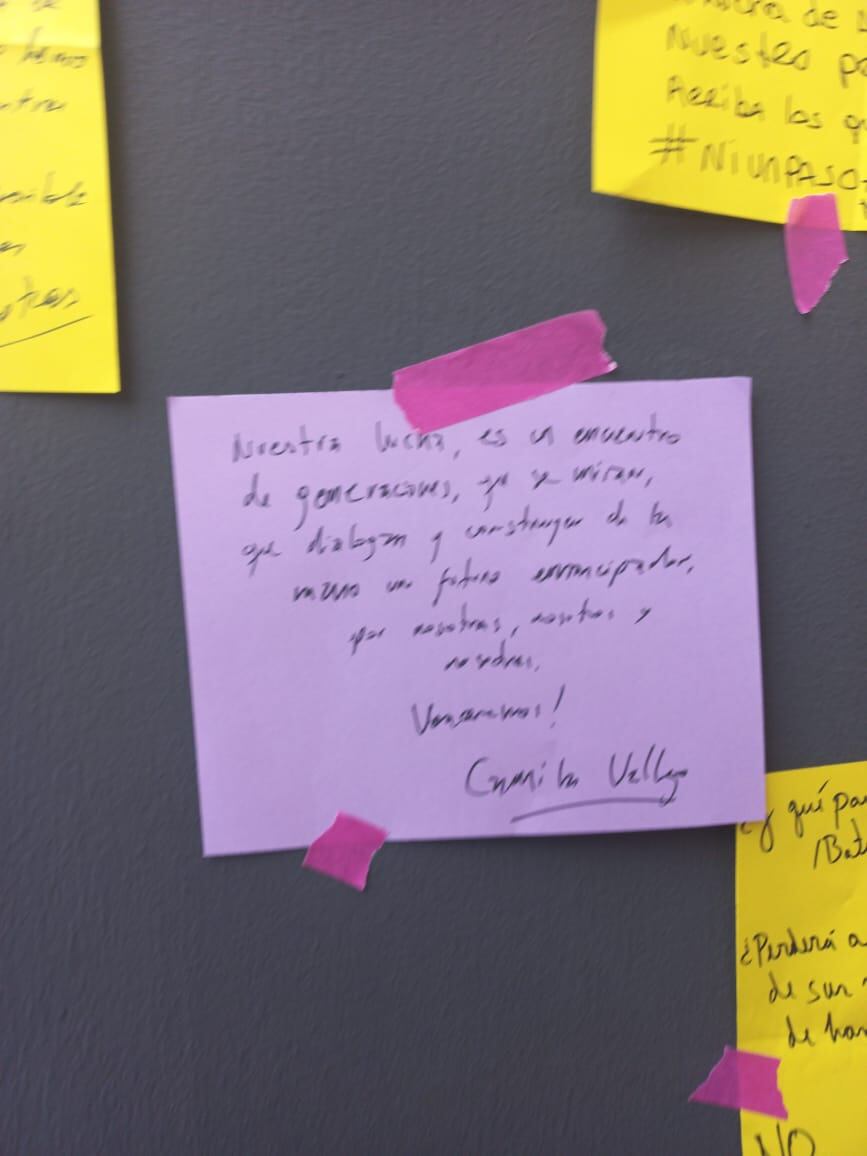 hemos
otras
Nuestro
Arriba los
#NIUNPASO
Nuestra lucha, es un encuentro
de generaciones, que se miran,
que dialogan y construyen de la
mano un futuro emancipador,
por nosotras, nosotros y
nosotres.
Venceremos!
Camila Vallejo
¿y qué
¿Perderá
de sur
de
NO